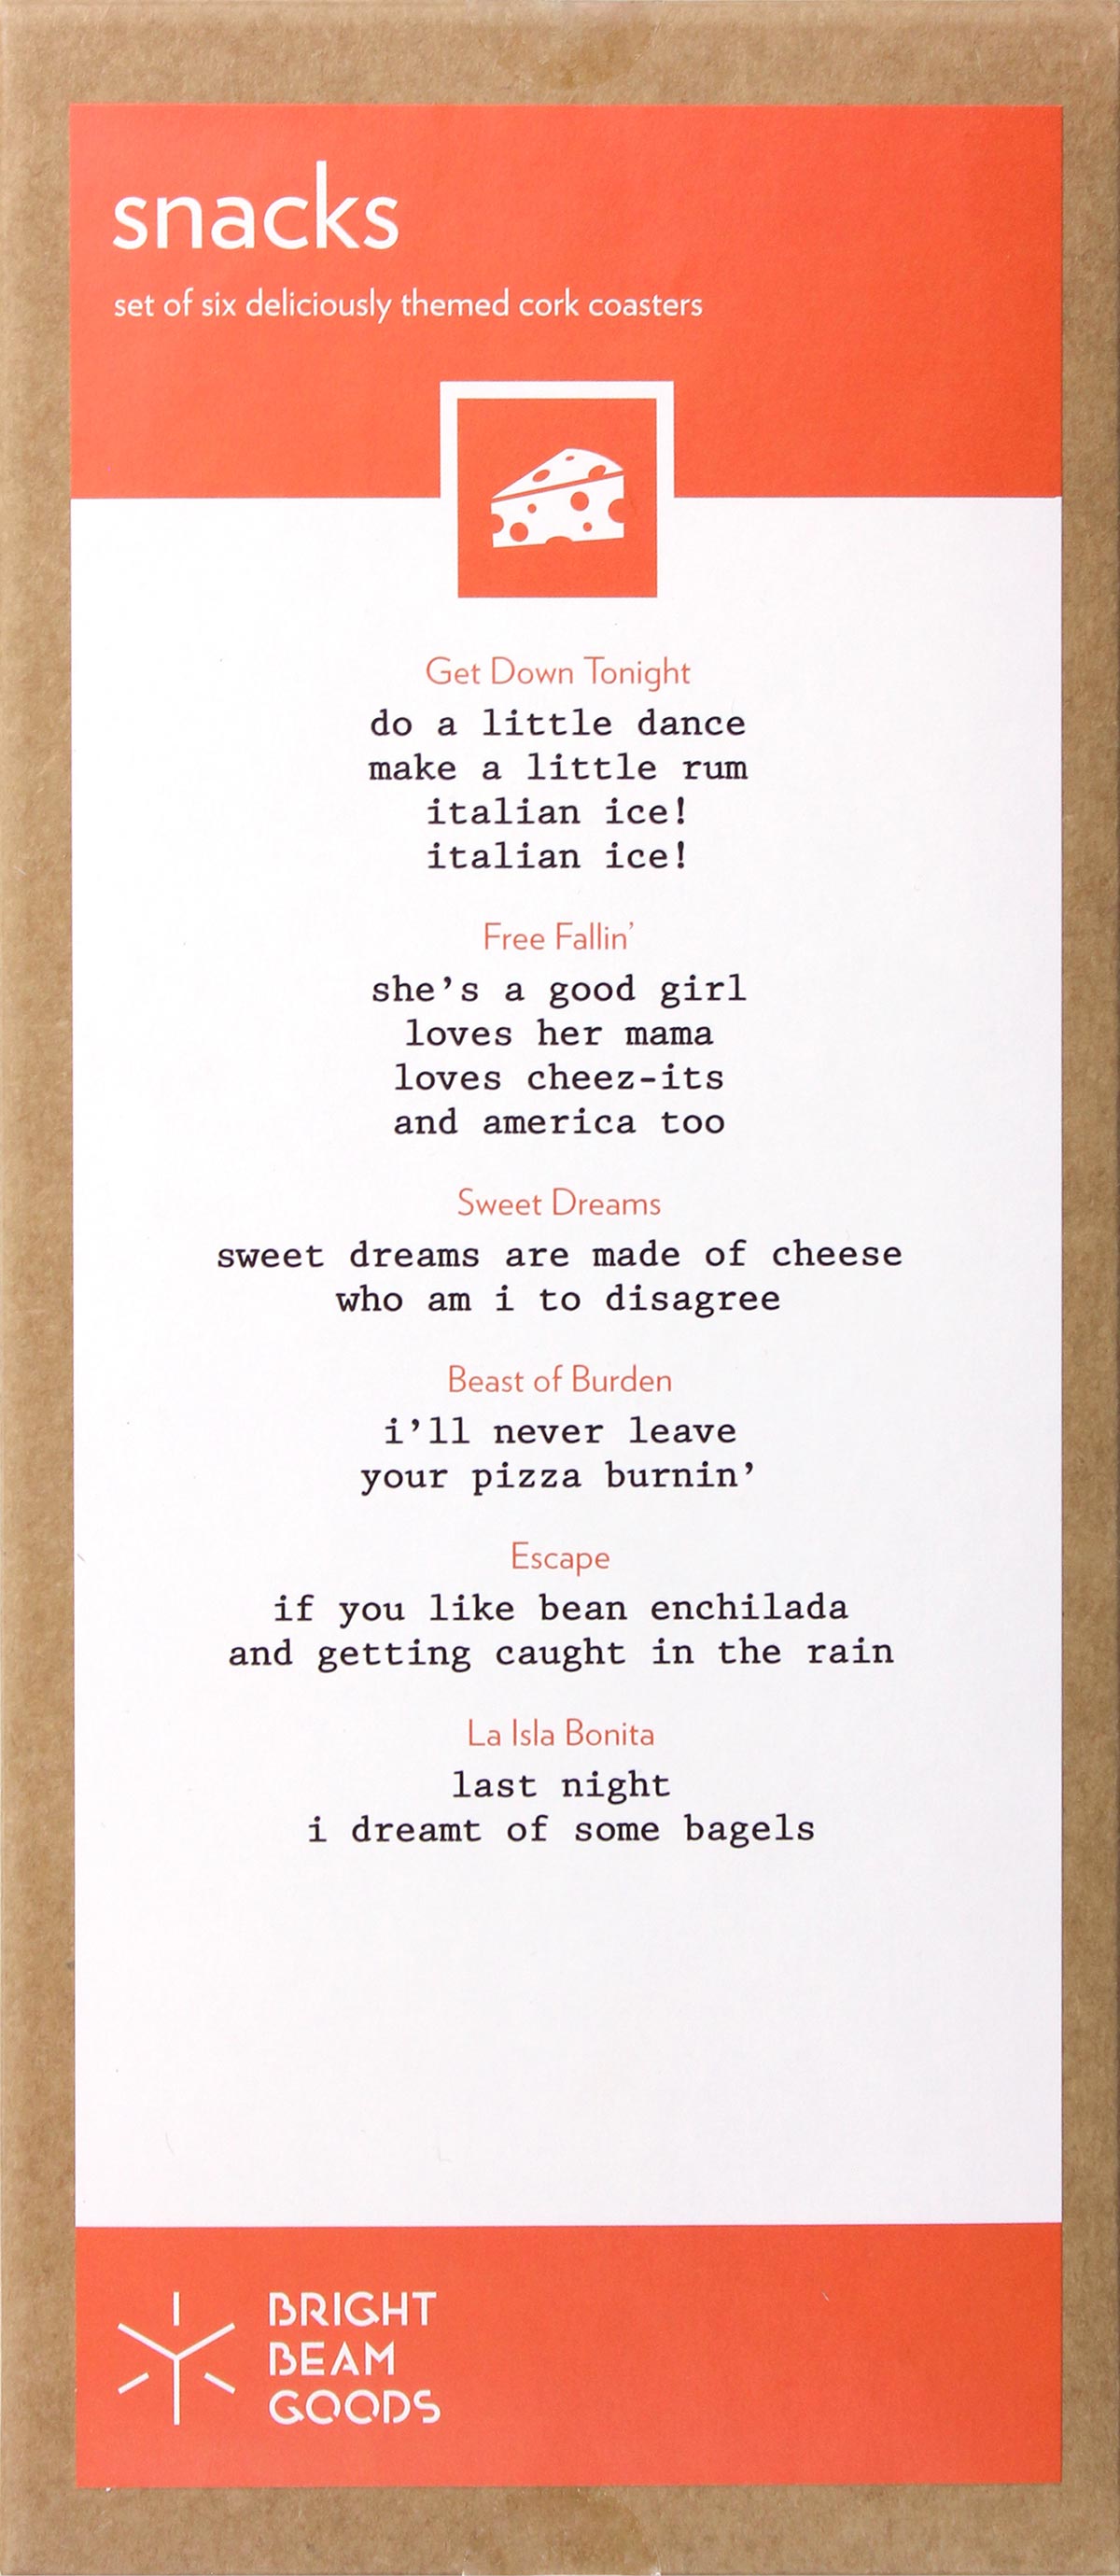 snacks
set of six deliciously themed cork coasters
Get Down Tonight
do a little dance
make a little rum
italian ice!
italian ice!
Free Fallin’
she’s a good girl
loves her mama
loves cheez-its
and america too
Sweet Dreams
sweet dreams are made of cheese
who am i to disagree
Beast of Burden
i’ll never leave
your pizza burnin’
Escape
if you like bean enchilada
and getting caught in the rain
La Isla Bonita
last night
i dreamt of some bagels
BRIGHT
BEAM
GOODS